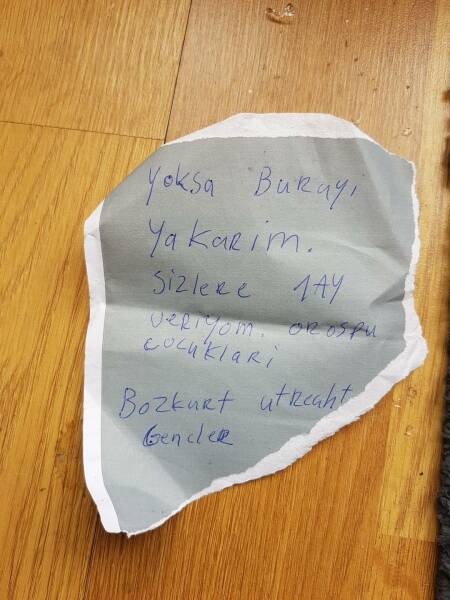 Yoksa Burayi
Yakarim.
sizlere 1AY
veriyom. orospu
cocuklari
Bozkurt utrcaht
Gencler